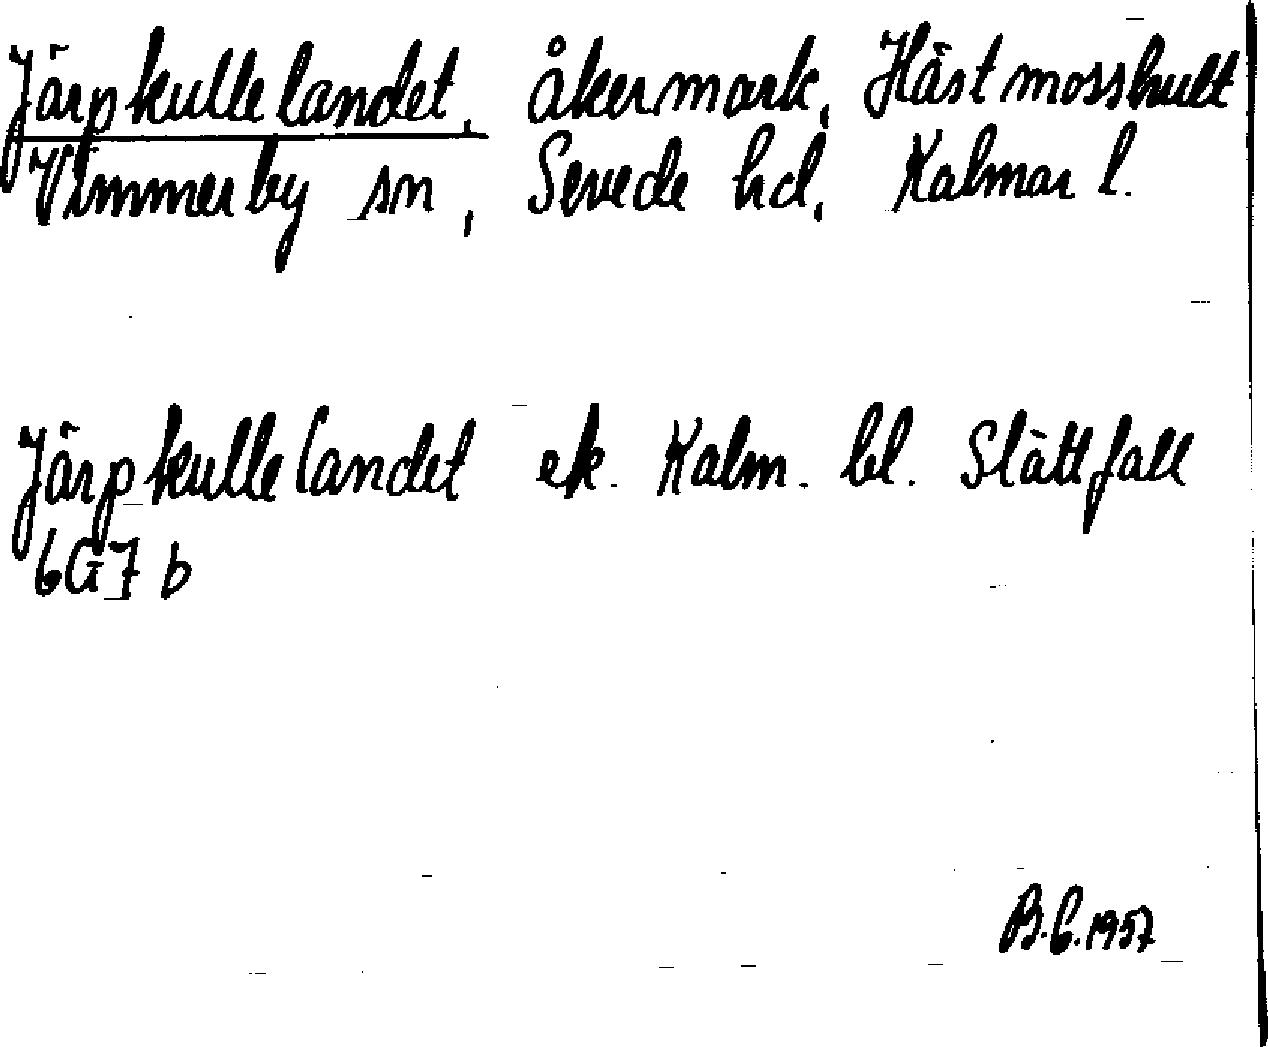 Järpkullelandet, åkermark, Hästmosshult
Vimmerby sn, Sevede hd, Kalmar l.
Järpkullelandet ek. Kalm. bl. Slättfall
6G7b
B.G.1957